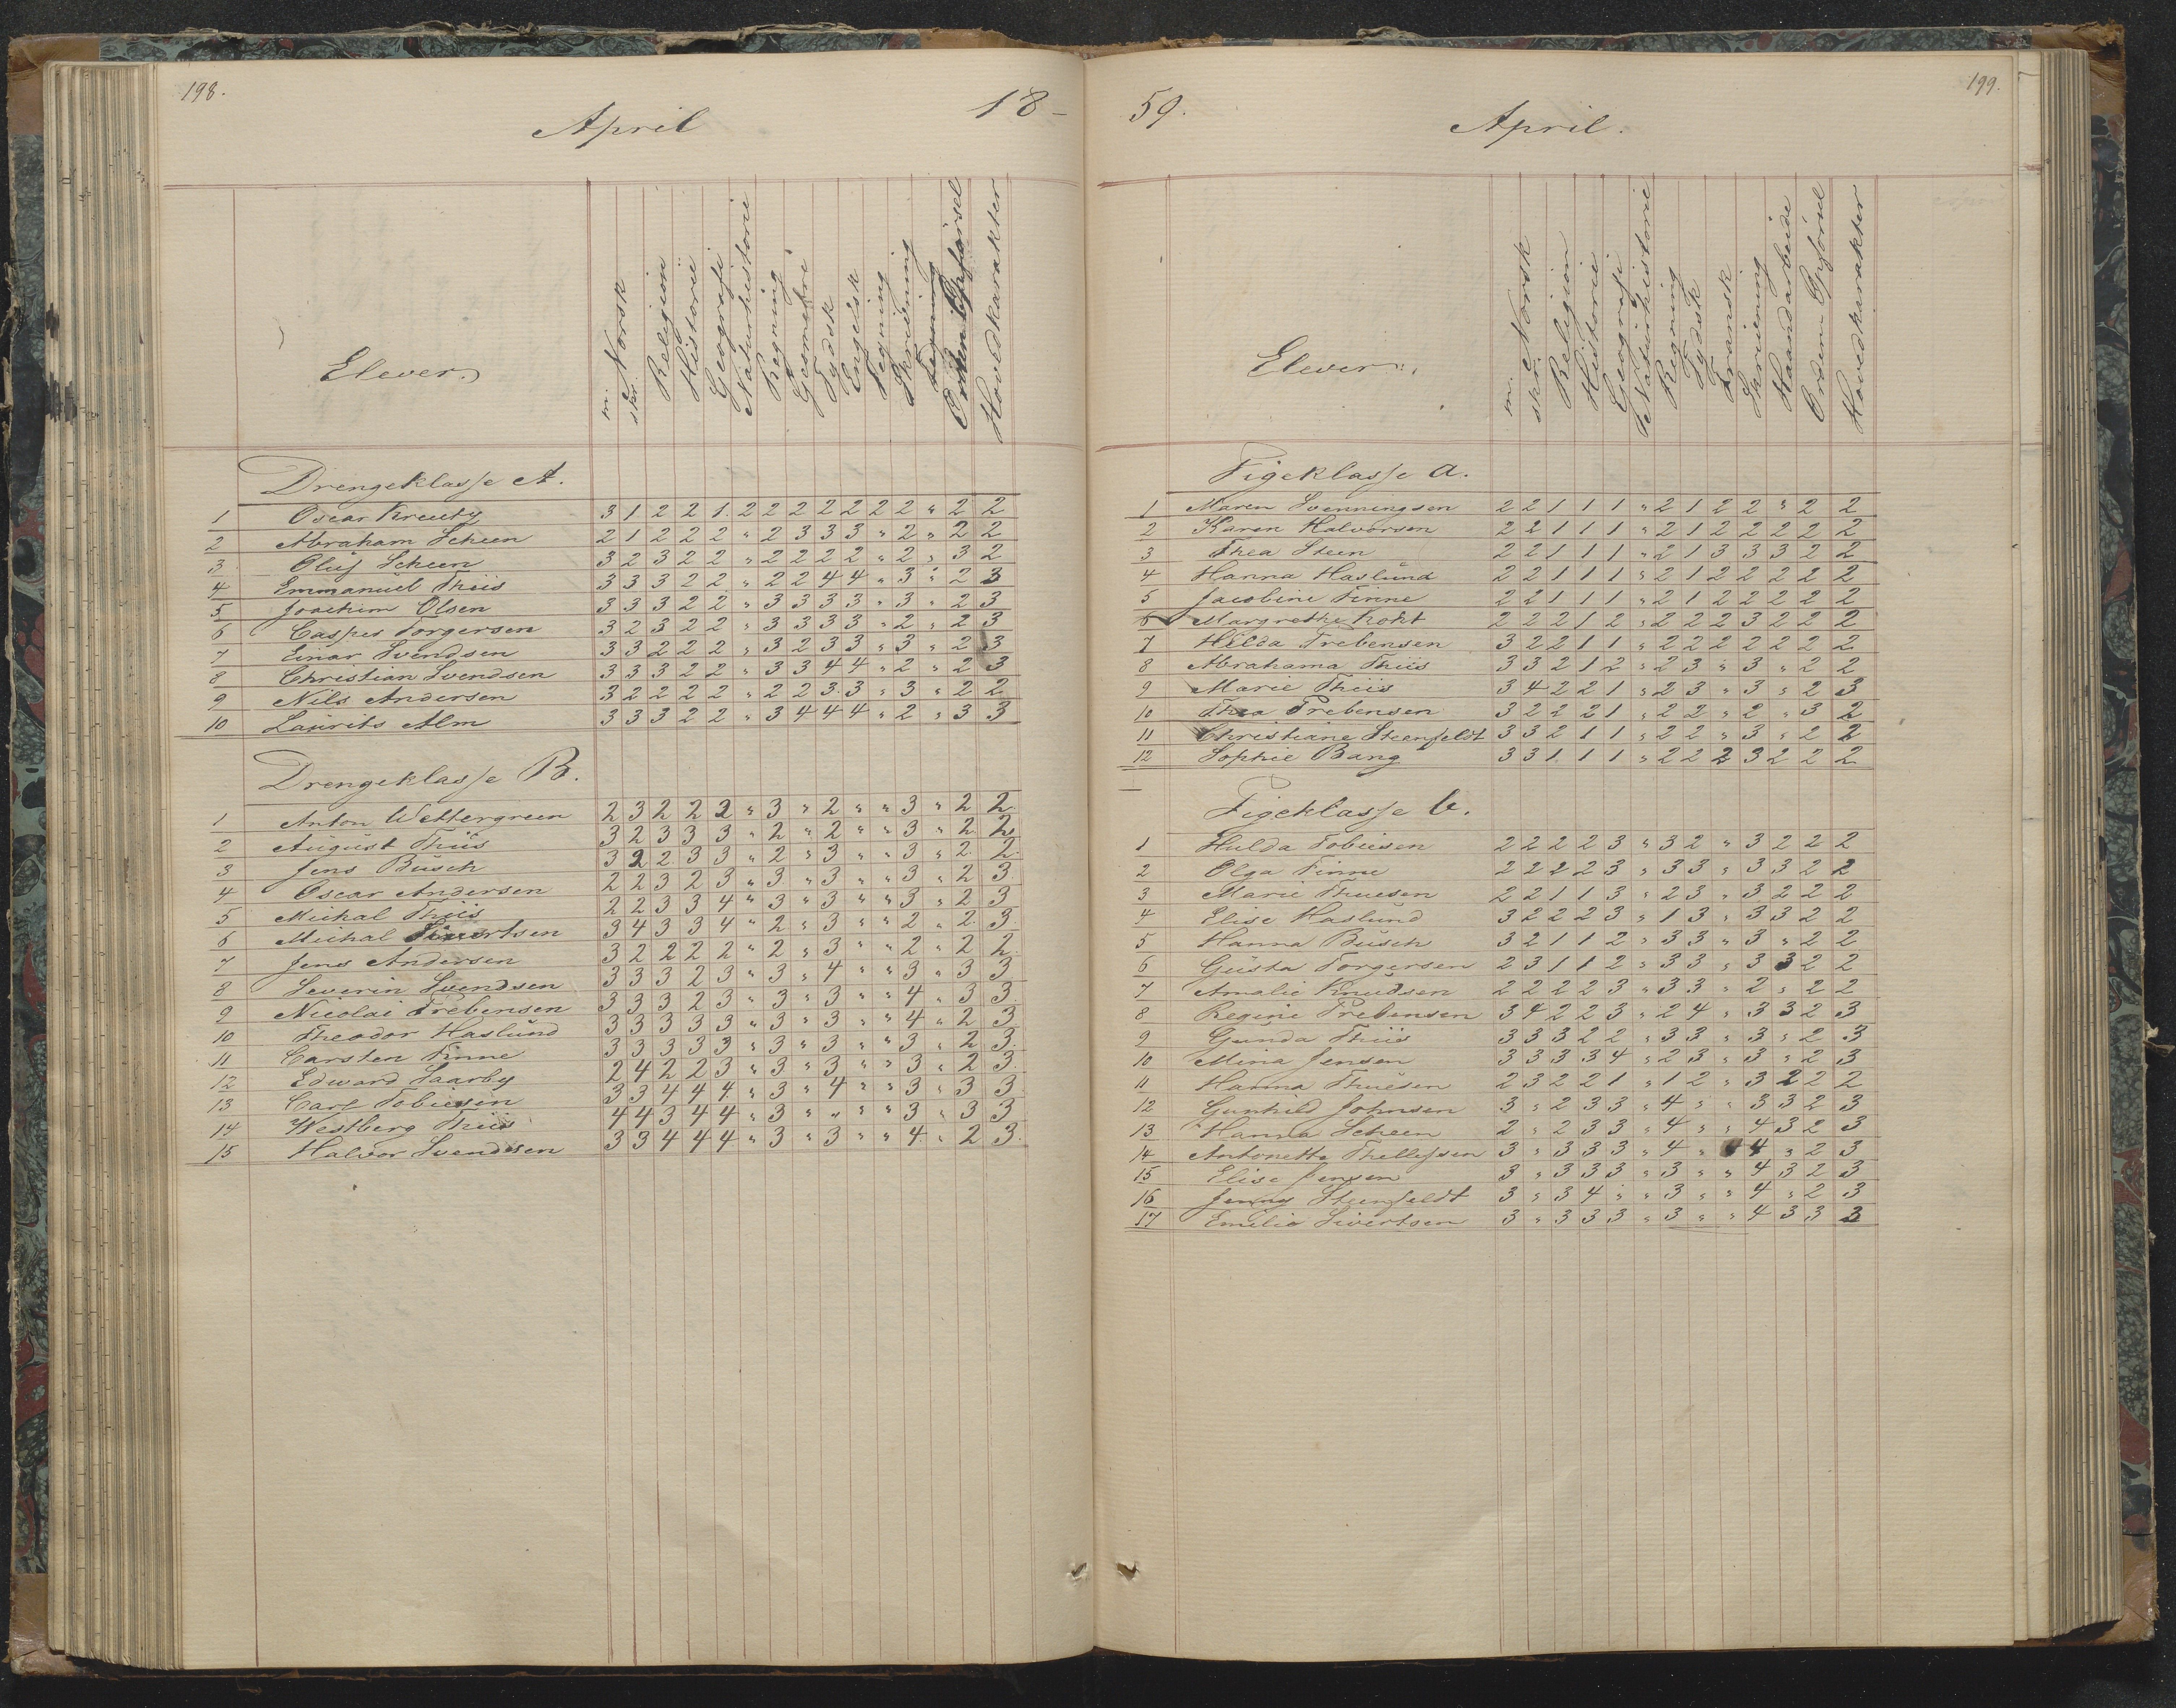 198.
April
18-
Elever.
m. Norsk
skr.
Religion
Historie
Geografi
Naturhistorie
Regning
Geometri
Tydsk
Engelsk
Tegning
Skrivning
Orden Opførsel
Hovedkarakter
Drengeklasse A.
1 Oscar Kreutz 3 1 2 2 1 2 2 2 2 2 2 2 " 2 2
2 Abraham Scheen 2 1 2 2 2 " 2 3 3 3 " 2 " 2 2
3 Oluf Scheen 3 2 3 2 2 " 2 2 2 2 " 2 " 3 2
4 Emmanuel Thiis 3 3 3 2 2 " 2 2 4 4 " 3 " 2 3
5 Joachim Olsen 3 3 3 2 2 " 3 3 3 3 " 3 " 2 3
6 Casper Torgersen 3 2 3 2 2 " 3 3 3 3 " 2 " 2 3
7 Einar Svendsen 3 3 2 2 2 " 3 2 3 3 " 3 " 2 3
8 Christian Svendsen 3 3 3 2 2 " 3 3 4 4 " 2 " 2 3
9 Nils Andersen 3 2 2 2 2 " 2 2 3 3 " 3 " 2 2
10 Laurits Alm 3 3 3 2 2 " 3 4 4 4 " 2 " 3 3
Drengeklasse B.
1 Anton Wettergreen 2 3 2 2 2 " 3 " 2 " " 3 " 2 2
2 August Thiis 3 2 3 3 3 " 2 " 2 " " 3 " 2 2
3 Jens Busch 3 2 2 3 3 " 2 " 3 " " 3 " 2 2
4 Oscar Andersen 2 2 3 2 3 " 3 " 3 " " 3 " 2 3
5 Michal Thiis 2 2 3 3 4 " 3 " 3 " " 3 " 2 3
6 Michal Sivertsen 3 4 3 3 4 " 2 " 3 " " 2 " 2 3
7 Jens Andersen 3 2 2 2 2 " 2 " 3 " " 2 " 2 2
8 Severin Svendsen 3 3 3 2 3 " 3 " 4 " " 3 " 3 3
9 Nicolai Prebensen 3 3 3 2 3 " 3 " 3 " " 4 " 3 3
10 Theodor Haslund 3 3 3 3 3 " 3 " 3 " " 4 " 2 3
11 Carsten Finne 3 3 3 3 3 " 3 " 3 " " 3 " 2 3
12 Edward Saarby 2 4 2 2 3 " 3 " 3 " " 3 " 2 3
13 Carl Tobiesen 3 3 4 4 4 " 3 " 4 " " 3 " 3 3
14 Westberg Thiis 4 4 3 4 4 " 3 " " " " 3 " 3 3
15 Halvor Svendsen 3 3 4 4 4 " 3 " 3 " " 4 " 2 3
199.
59.
April.
Elever.
m. Norsk
skr.
Religion
Historie
Geografi
Naturhistorie
Regning
Tydsk
Fransk
Skrivning
Haandarbeide
Orden Opførsel
Hovedkarakter
Pigeklasse a.
1 Maren Svenningsen 2 2 1 1 1 " 2 1 2 2 " 2 2
2 Karen Halvorsen 2 2 1 1 1 " 2 1 2 2 2 2 2
3 Thea Steen 2 2 1 1 1 " 2 1 3 3 3 2 2
4 Hanna Haslund 2 2 1 1 1 " 2 1 2 2 2 2 2
5 Jacobine Finne 2 2 1 1 1 " 2 1 2 2 2 2 2
6 Margrethe Koht 2 2 2 1 2 " 2 2 2 3 2 2 2
7 Hilda Prebensen 3 2 2 1 1 " 2 2 2 2 2 2 2
8 Abrahama Thiis 3 3 2 1 2 " 2 3 " 3 " 2 2
9 Marie Thiis 3 4 2 2 1 " 2 3 " 3 " 2 3
10 Thea Prebensen 3 2 2 2 1 " 2 2 " 2 " 3 2
11 Christiane Steenfeldt 3 3 2 1 1 " 2 2 " 3 " 2 2
12 Sophie Bang 3 3 1 1 1 " 2 2 2 3 2 2 2
Pigeklasse b.
1 Hulda Tobiesen 2 2 2 2 3 " 3 2 " 3 2 2 2
2 Olga Finne 2 2 2 2 3 " 3 3 " 3 3 2 2
3 Marie Thuesen 2 2 1 1 3 " 2 3 " 3 2 2 2
4 Elise Haslund 3 2 2 2 3 " 1 3 " 3 3 2 2
5 Hanna Busch 3 2 1 1 2 " 3 3 " 3 " 2 2
6 Gusta Torgersen 2 3 1 1 2 " 3 3 " 3 3 2 2
7 Amalie Knudsen 2 2 2 2 3 " 3 3 " 2 " 2 2
8 Regine Prebensen 3 4 2 2 3 " 2 4 " 3 3 2 3
9 Gunda Thiis 3 3 3 2 2 " 3 3 " 3 " 2 3
10 Mina Jensen 3 3 3 3 4 " 2 3 " 3 " 2 3
11 Hanna Thuesen 2 3 2 2 1 " 1 2 " 3 2 2 2
12 Gunhild Johnsen 3 " 2 3 3 " 4 " " 3 3 2 3
13 Hanna Scheen 2 " 2 3 3 " 4 " " 4 3 2 3
14 Antonette Thellefsen 3 " 3 3 3 " 4 " 4 " 2 3
15 Elise Jensen 3 " 3 3 3 " 3 " " 4 3 2 3
16 Jenny Steenfeldt 3 " 3 4 " " 3 " " 4 " 2 3
17 Emilie Sivertsen 3 " 3 3 3 " 3 " " 4 3 3 3